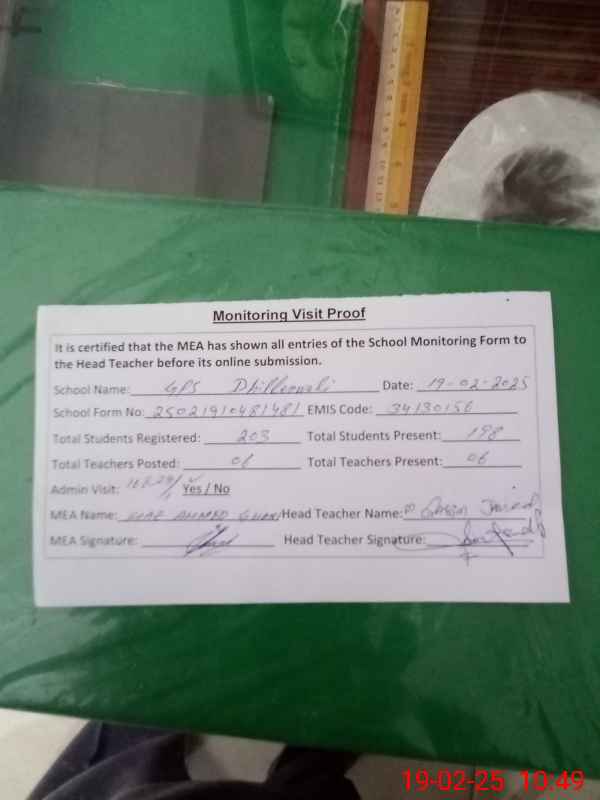 Monitoring Visit Proof
It is certified that the MEA has shown all entries of the School Monitoring Form to
the Head Teacher before its online submission.
School Name: GPS Dhilleewali Date: 19-02-2025
School Form No: 25021910481481 EMIS Code: 34130156
Total Students Registered: 203 Total Students Present: 198
Total Teachers Posted: 06 Total Teachers Present: 06
Admin Visit: Yes / No
MEA Name: AHMED Head Teacher Name:
MEA Signature: Head Teacher Signature:
19-02-25 10:49